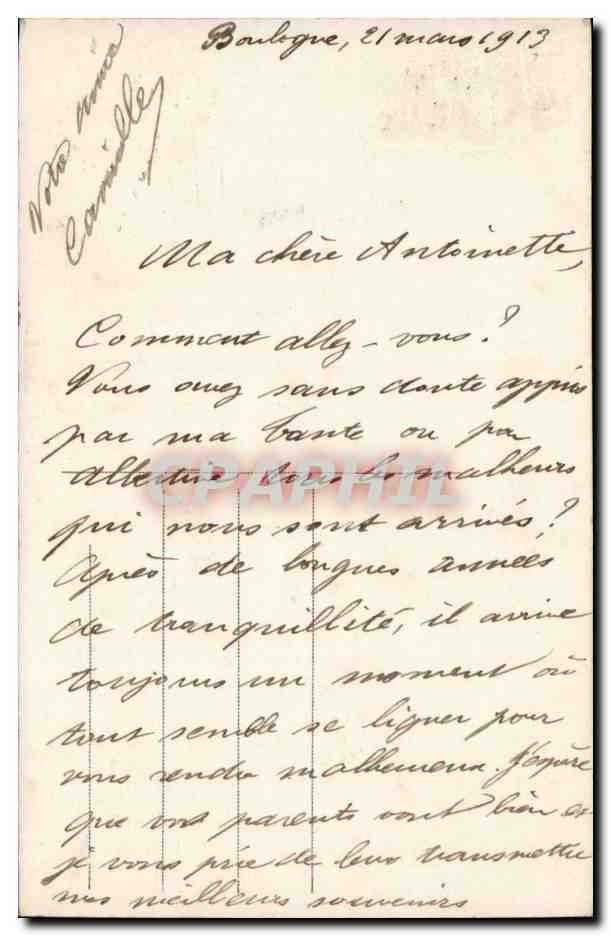 Boulogne, 21 mars 1913
Votre amie
Camille
Ma chère Antoinette,
Comment allez-vous ?
Vous avez sans doute appris
par ma tante ou par
Albertine tous les malheurs
qui nous sont arrivés ?
Après de longues années
de tranquillité, il arrive
toujours un moment où
tout semble se liguer pour
vous rendre malheureux. J'espère
que vos parents vont bien et
je vous prie de leur transmettre
mes meilleurs souvenirs
CPAPHIL